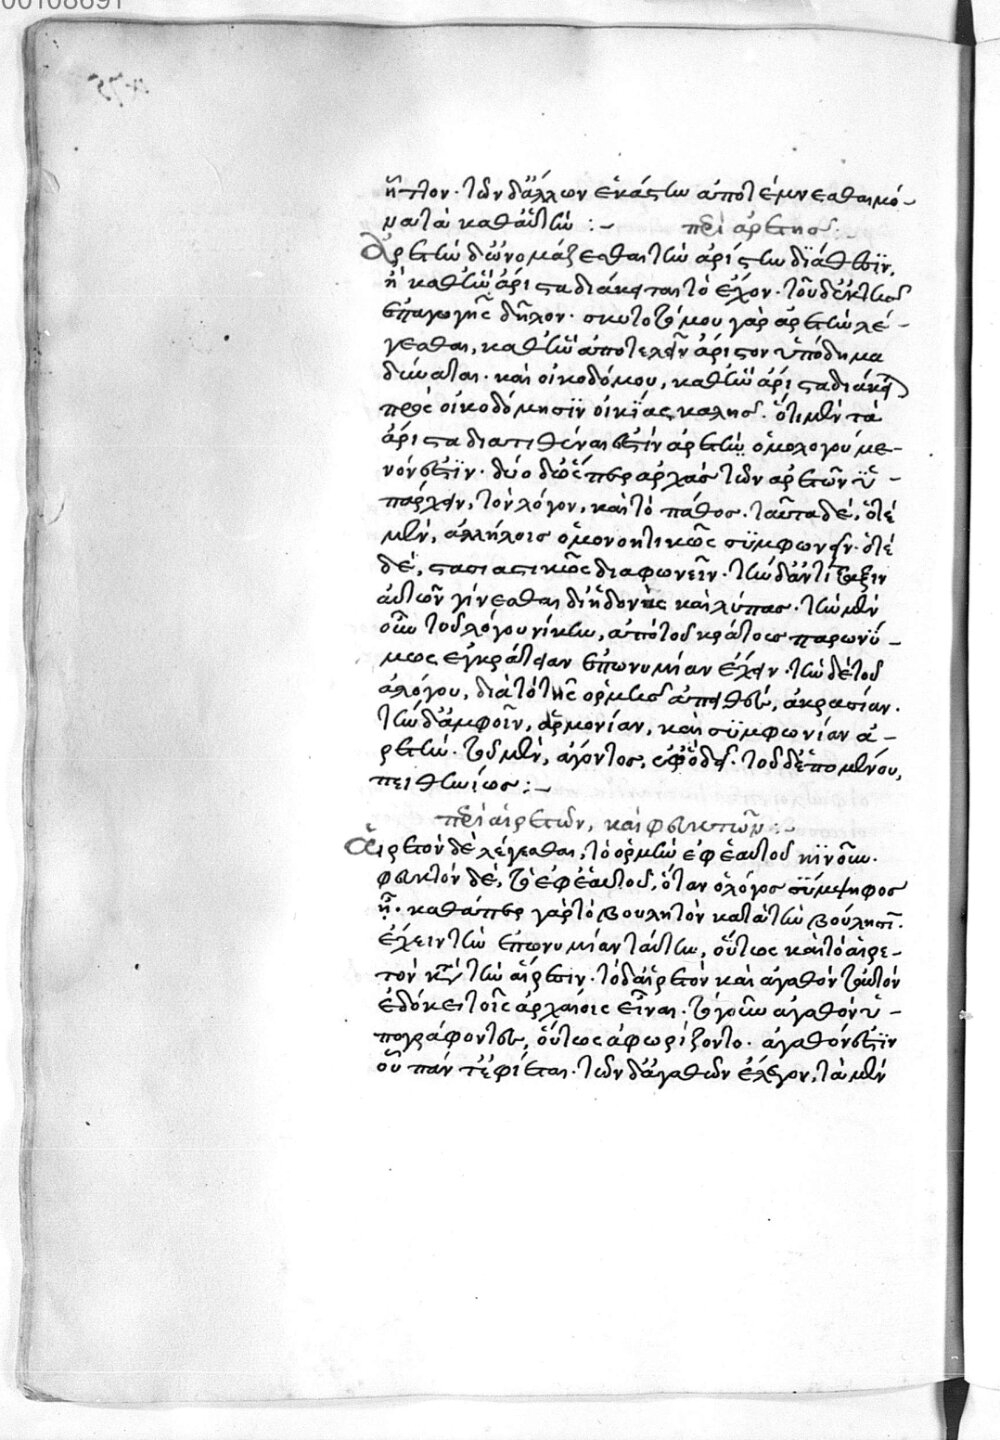 00108691
ἧττον· τῶν δ' ἄλλων ἑκάστῳ ἀποτέμνεσθαι μό-
να τὰ καθ' αὑτήν :~ περὶ ἀρετῆς :~
Ἀρετὴν δ' ὠνομάζεσθαι τὴν ἀρίστην διάθεσϊν,
ἢ καθ' ἣν ἄριστα διάκειται τὸ ἔχον· τοῦ δὲ ἐκ τῆς
ἐπαγωγῆς δῆλον· σκυτοτόμου γὰρ ἀρετὴν λέ-
γεσθαι, καθ' ἣν ἀποτελεῖν ἄριστον ὑπόδημα
δύναται· καὶ οἰκοδόμου, καθ' ἣν ἄριστα διάκει(ται)
πρὸς οἰκοδόμησϊν οἰκίας καλῆς· ὅτι μὲν τὰ
ἄριστα διατιθέναι ἐστὶν ἀρετὴν ὁμολογούμε-
νόν ἐστϊν· δύο δ' ὥσπερ ἀρχὰς τῶν ἀρετῶν ὑ-
πάρχειν, τὸν λόγον, καὶ τὸ πάθος· ταῦτα δέ, ὁτὲ
μὲν, ἀλλήλοις ὁμονοητικῶς σϋμφωνεῖν· ὁτὲ
δὲ, στασιαστικῶς διαφωνεῖν· τὴν δ' ἀντίταξιν
αὐτῶν γίνεσθαι δι' ἡδονὰς καὶ λύπας· τὴν μὲν
οὖν τοῦ λόγου νίκην, ἀπὸ τοῦ κράτους παρωνΰ-
μως ἐγκράτειαν ἐπωνυμίαν ἔχειν· τὴν δὲ τοῦ
ἀλόγου, διὰ τὸ τῆς ὁρμῆς ἀπειθὲς, ἀκρασίαν·
τὴν δ' ἀμφοῖν, ἁρμονίαν, καὶ σϋμφωνίαν ἀ-
ρετὴν· τοῦ μὲν, ἄγοντος, ἐφ' ὃ δεῖ· τοῦ δ' ἑπομένου,
πειθηνίως :~
περὶ αἱρετῶν, καὶ φευκτῶν :~
Αἱρετὸν δὲ λέγεσθαι, τὸ ὁρμὴν ἐφ' ἑαυτοῦ κϊνοῦν·
φευκτὸν δὲ, τὸ ἐφ' ἑαυτοῦ, ὅταν ὁ λόγος σΰμψηφος
ᾖ· καθάπερ γὰρ τὸ βουλητὸν κατὰ τὴν βούλησϊν
ἔχειν τὴν ἐπωνυμίαν ταύτην, οὕτως καὶ τὸ αἱρε-
τὸν κατὰ τὴν αἵρεσιν· τὸ δ' αἱρετὸν καὶ ἀγαθὸν ταὐτὸν
ἐδόκει τοῖς ἀρχαίοις εἶναι· τὸ γοῦν ἀγαθὸν ὑ-
πογράφοντες, οὕτως ἀφωρίζοντο· ἀγαθόν ἐστϊν
οὗ πάντ' ἐφίεται· τῶν δ' ἀγαθῶν ἔλεγον, τὰ μὲν